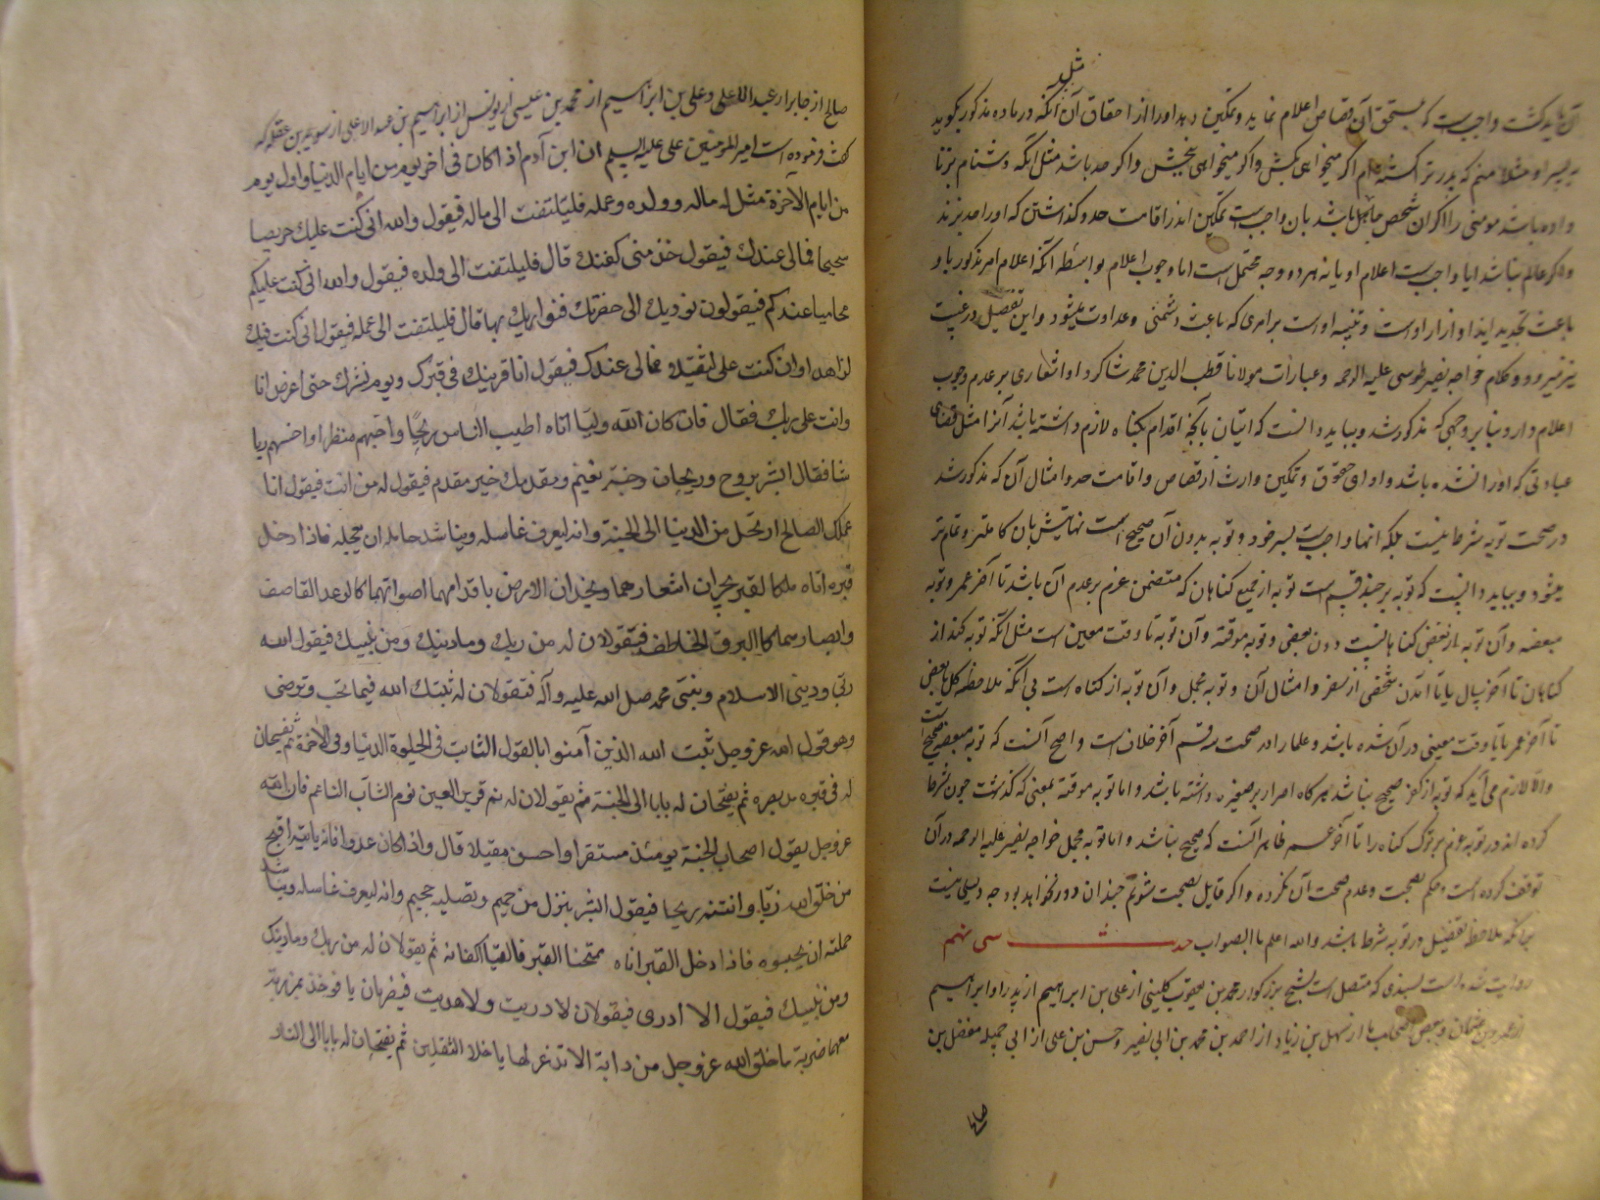 مثل
آن باید کشت واجبست که مستحق آن قصاص اعلام نماید و تمکین دهد او را از احقاق آن آنکه در ماده مذکور بگوید
به پسر او مثلا منم که پدر ترا کشته‌ام اگر میخواهی بکش و اگر میخواهی ببخش و اگر حد باشد مثل آنکه دشنام بزنا
داده باشد مومنی را اگر آن شخص باشد بان واجبست تمکین از اقامت حد و گذاشتن که او را حد بزند
و اگر عالم نباشد ایا واجبست اعلام او یا نه هر دو وجه محتمل است اما وجوب اعلام بواسطه آنکه اعلام امر مذکور با او
باعث تجدید ایذا و آزار اوست و تنبیه اوست بر امری که باعث دشمنی و عداوت میشود و این تفصیل در غیبت
نیز میرود و کلام خواجه نصیر طوسی علیه الرحمه و عبارات مولانا قطب الدین محمد شاکرد او اشعاری بر عدم وجوب
اعلام دارد بنا بر وجهی که مذکور شد و بباید دانست که اتیان بآنچه اقدام بگناه لازم داشته باشد آنرا مثل قضای
عبادتی که او را نشده باشد و ادای حقوق و تمکین وارث از قصاص و اقامت حد و امثال آن که مذکور شد
در صحت توبه شرط نیست بلکه آنها واجبست بسر خود و توبه بدون آن صحیح است نهایتش بان کاملتر و تمامتر
میشود و بباید دانست که توبه بر چند قسم است توبه از جمیع گناهان که متضمن عزم بر عدم آن باشد تا آخر عمر و توبه
مبعضه و آن توبه از بعض گناهانست دون بعضی و توبه موقته و آن توبه تا وقت معین است مثل آنکه توبه کند از
گناهان تا آخر سال یا تا آمدن شخصی از سفر و امثال آن و توبه مجمل و آن توبه از گناه است بی آنکه ملاحظه کل یا بعض
تا آخر عمر یا تا وقت معینی در آن شده باشد و علما را در صحت سه قسم آخر خلاف است و اصح آنست که توبه مبعضه صحیح است
و الا لازم می آید که توبه از کفر صحیح نباشد هرگاه اصرار بر صغیره داشته باشد و اما توبه موقته بمعنی که گذشت چون شرط
کرده اند در توبه عزم بر ترک گناه را تا آخر عمر ظاهر آنست که صحیح نباشد و اما توبه مجمل خواجه نصیر علیه الرحمه در آن
توقف کرده است و حکم بصحت و عدم صحت آن نکرده و اگر قایل بصحت شویم چندان دور نخواهد بود چه دلیلی نیست
بر آنکه ملاحظه تفصیل در توبه شرط باشد والله اعلم بالصواب حدیث سی نهم
روایت شده است بسندی که متصل است بشیخ بزرگوار محمد بن یعقوب کلینی از علی بن ابراهیم از پدر او ابراهیم
از عمرو بن عثمان و بعض اصحاب ما از سهل بن زیاد از احمد بن محمد بن ابی نصیر و حسن بن علی از ابی جمیله مفضل بن
صالح
صالح از جابر از عبدالاعلی و علی بن ابراهیم از محمد بن عیسی از یونس از ابراهیم بن عبدالاعلی از سوید بن غفله که
گفت فرموده است امیر المؤمنین علی علیه السلم ان ابن آدم اذا کان فی اخر یوم من ایام الدنیا و اول یوم
من ایام الآخرة مثل له ماله و ولده و عمله فلیلتفت الی ماله فیقول والله انی کنت علیک حریصا
شحیحا فمالی عندک فیقول خذ منی کفنک قال فلیلتفت الی ولده فیقول والله انی کنت علیکم
محامیا عندکم فیقولون نودیک الی حفرتک فنواریک بها قال فلیلتفت الی عمله فیقول انی کنت فیک
لزاهدا و ان کنت علی لثقیلا فمالی عندک فیقول انا قرینک فی قبرک و یوم نشرک حتی اعرض انا
وانت علی ربک فقال فان کان لله ولیا اتاه اطیب الناس ریحا و احبهم منظرا و احسنهم ریا
شا فقال ابشر بروح و ریحان و جنة نعیم و مقدمک خیر مقدم فیقول له من انت فیقول انا
عملک الصالح ارتحل من الدنیا الی الجنة و انه لیعرف غاسله و یناشد حامله ان یعجله فاذا دخل
قبره اتاه ملکا القبر یجران اشعارهما و یخدان الارض باقدامهما اصواتهما کالرعد القاصف
وابصارهما کالبرق الخاطف فیقولان له من ربک و ما دینک و من نبیک فیقول الله
ربی و دینی الاسلام و نبیی محمد صل الله علیه و آله فیقولان له ثبتک الله فیما تحب و ترضی
وهو قول الله عز و جل یثبت الله الذین آمنوا بالقول الثابت فی الحیوة الدنیا و فی الآخرة ثم یفسحان
له فی قبره مد بصره ثم یفتحان له بابا الی الجنة ثم یقولان له نم قریر العین نوم الشاب الناعم فان الله
عز و جل یقول اصحاب الجنة یومئذ خیر مستقرا و احسن مقیلا قال و اذا کان عدوا فانه یاتیه اقبح
من خلق الله زیا و انتنه ریحا فیقول ابشر بنزل من حمیم و تصلیة جحیم و انه لیعرف غاسله و یناشد
حملته ان یحبسوه فاذا دخل القبر اتاه ممتحنا القبر فالقیا اکفانه ثم یقولان له من ربک و ما دینک
و من نبیک فیقول لا ادری فیقولان لا دریت و لا هدیت فیضربان یافوخه بمرزبة
معهما ضربة ما خلق الله عز و جل من دابة الا تذعر لها ما خلا الثقلین ثم یفتحان له بابا الی النار